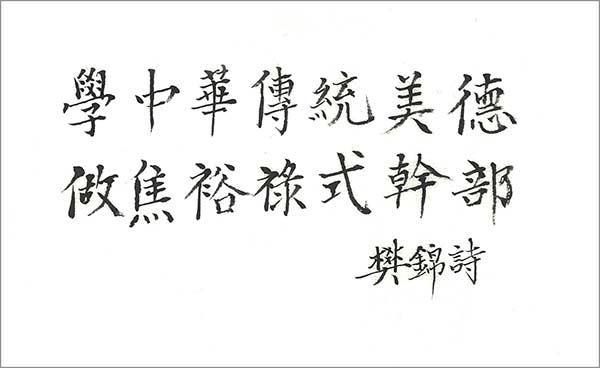 學中華傳統美德
做焦裕祿式幹部
樊錦詩